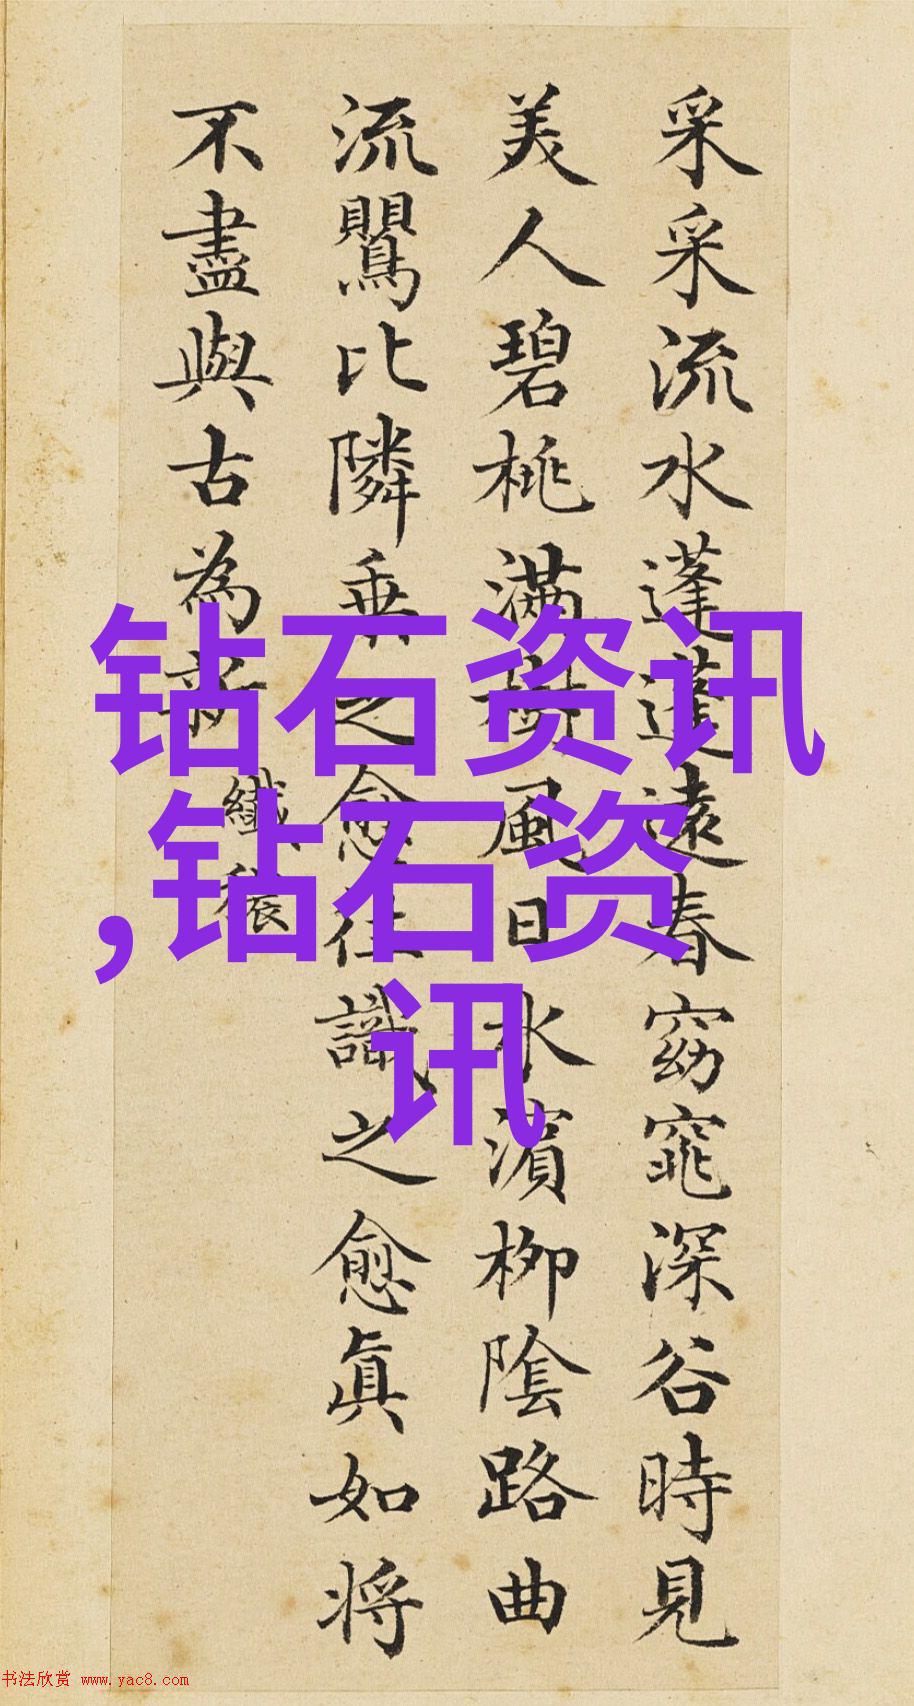 采采流水蓬蓬遠春窈窕深谷時見
美人碧桃滿樹風日水濱柳陰路曲
流鸎比隣乗之愈往識之愈眞如将
不盡與古為新 纖穠
钻石资讯
,钻石资
讯
书法欣赏 www.yac8.com